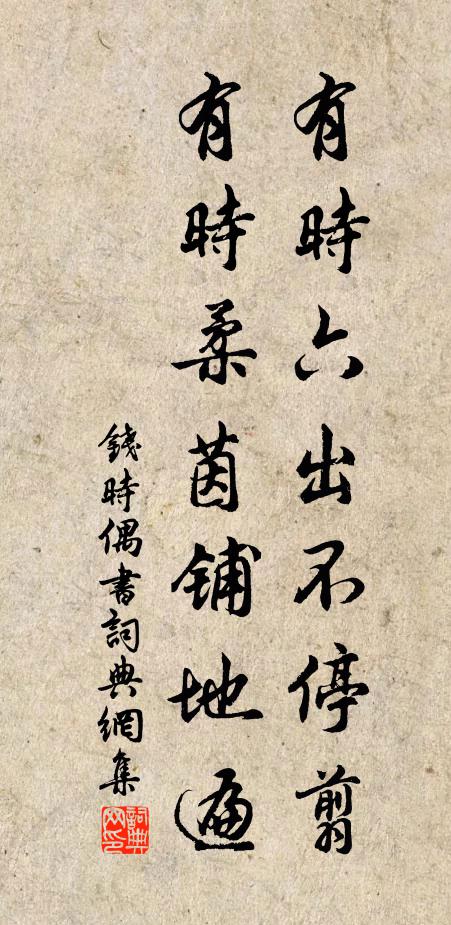 有時六出不停翦
有時柔茵鋪地遍
錢時偶書詞典網集
詞典网印